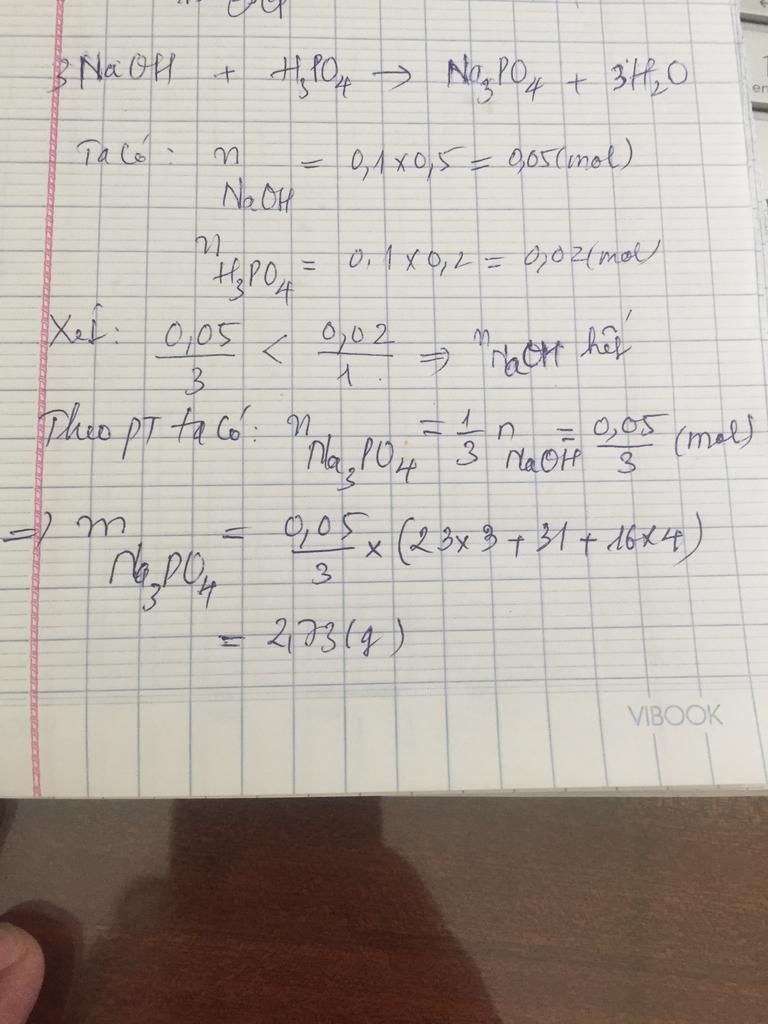 3NaOH + H₃PO₄ → Na₃PO₄ + 3H₂O
Ta có: n NaOH = 0,1 x 0,5 = 0,05 (mol)
n H₃PO₄ = 0,1 x 0,2 = 0,02 (mol)
Xét: 0,05/3 < 0,02/1 ⇒ n NaOH hết
Theo PT ta có: n Na₃PO₄ = 1/3 n NaOH = 0,05/3 (mol)
⇒ m Na₃PO₄ = 0,05/3 x (23x3 + 31 + 16x4)
= 2,73 (g)
VIBOOK